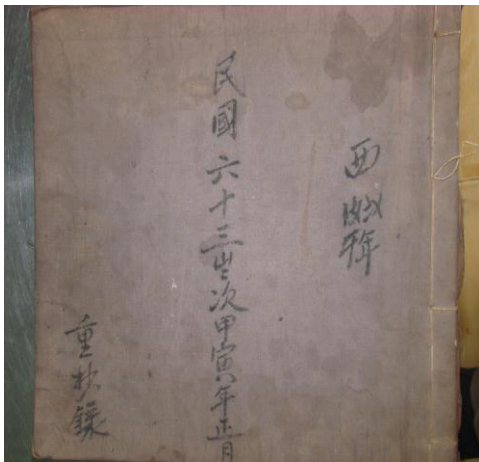 西
民國六十三歲次甲寅年正月
重抄錄